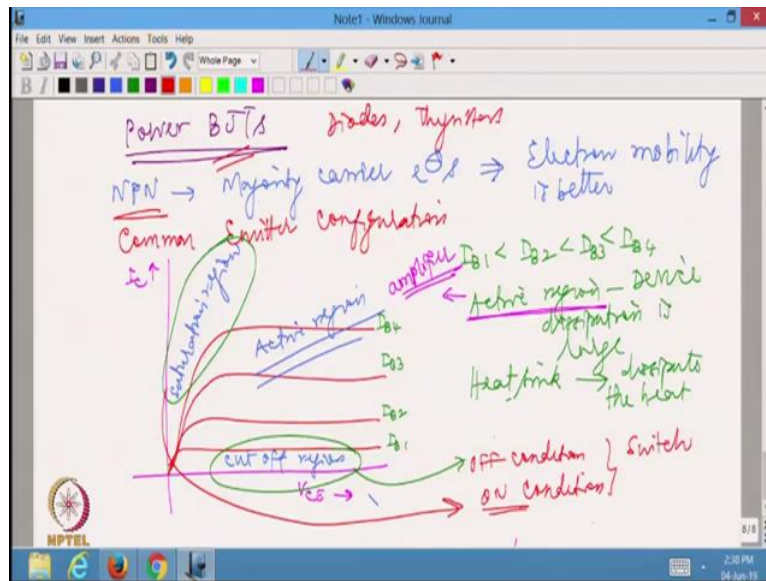 Note1 - Windows Journal
File Edit View Insert Actions Tools Help
Whole Page
B I
Power BJTs Diodes, Thyristors
NPN → Majority carrier e⊖s ⇒ Electron mobility
is better
Common Emitter configuration
IC ↑
saturation region
Active region
amplifier
IB1 < IB2 < IB3 < IB4
← Active region - Device
dissipation is
large
Heat sink → dissipates
the heat
IB4
IB3
IB2
IB1
cut off region
VCE →
OFF condition } Switch
ON condition }
NPTEL
8/8
2:38 PM
04-Jun-19